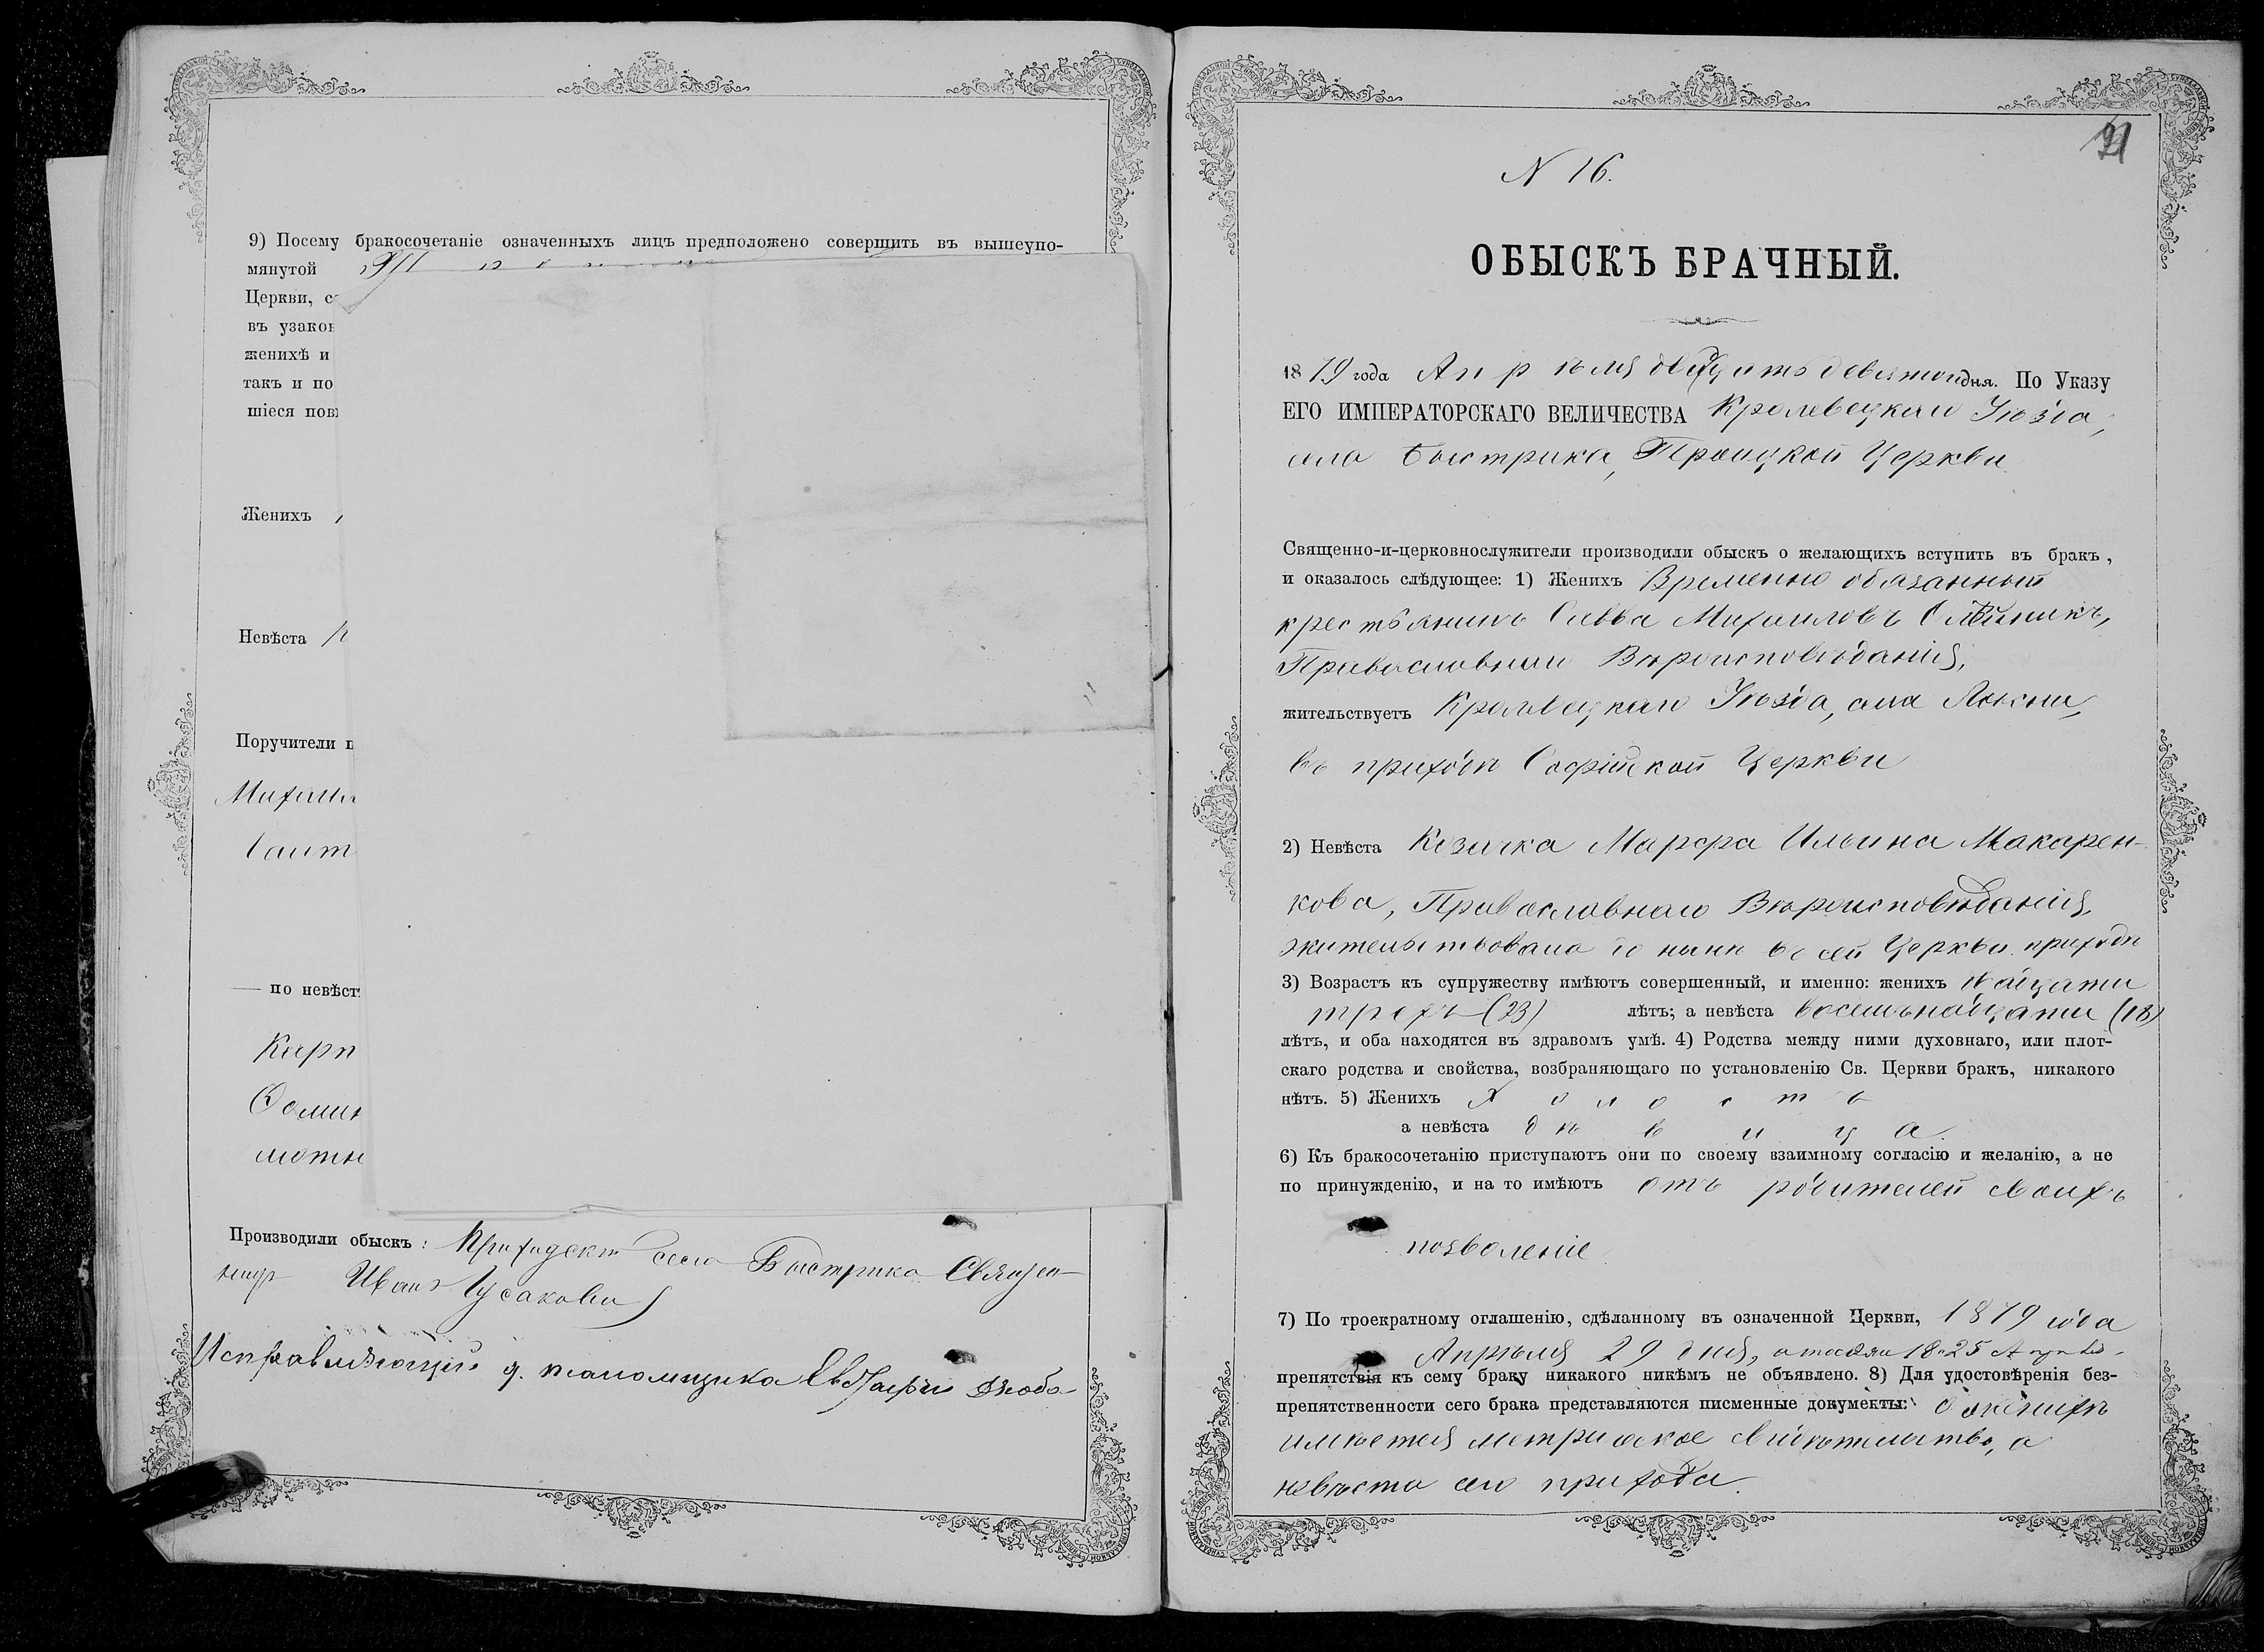 9) Посему бракосочетаніе означенныхъ лицъ предположено совершить въ вышеупо-
мянутой
Церкви, с
въ узакон
женихѣ и
такъ и по
шіеся пов
Женихъ
Невѣста
Поручители п
Михаил
— по невѣст
Карп
мотн
Производили обыскъ: села Быстрика Священ-
никъ Иванъ
Исправляющій д. паломщика
21
N 16.
ОБЫСКЪ БРАЧНЫЙ.
1879 года Апрѣля двадцать девятого дня. По Указу
ЕГО ИМПЕРАТОРСКАГО ВЕЛИЧЕСТВА Кролевецкаго Уѣзда,
села Быстрика, Троицкой Церкви
Священно-и-церковнослужители производили обыскъ о желающихъ вступить въ бракъ,
и оказалось слѣдующее: 1) Женихъ Временно обязанный
крестьянинъ Савва Михаиловъ Олѣйникъ,
Православнаго Вѣроисповѣданія,
жительствуетъ Кролевецкаго Уѣзда, села
въ приходѣ Софійской Церкви
2) Невѣста Козачка Марфа Ильина Макарен-
кова, Православнаго Вѣроисповѣданія,
жительствовала до нынѣ въ сей Церкви приходѣ
3) Возрастъ къ супружеству имѣютъ совершенный, и именно: женихъ двадцати
трехъ (23) лѣтъ; а невѣста восемьнадцати (18)
лѣтъ, и оба находятся въ здравомъ умѣ. 4) Родства между ними духовнаго, или плот-
скаго родства и свойства, возбраняющаго по установленію Св. Церкви бракъ, никакого
нѣтъ. 5) Женихъ Холостъ
а невѣста дѣвица.
6) Къ бракосочетанію приступаютъ они по своему взаимному согласію и желанію, а не
по принужденію, и на то имѣютъ отъ родителей своихъ
позволеніе
7) По троекратному оглашенію, сдѣланному въ означенной Церкви, 1879 года
Апрѣля 29 дня,
препятствія къ сему браку никакого никѣмъ не объявлено. 8) Для удостовѣренія без-
препятственности сего брака представляются писменные документы: о женихѣ
имѣется метрическое свидѣтельство, а
невѣста сего прихода.